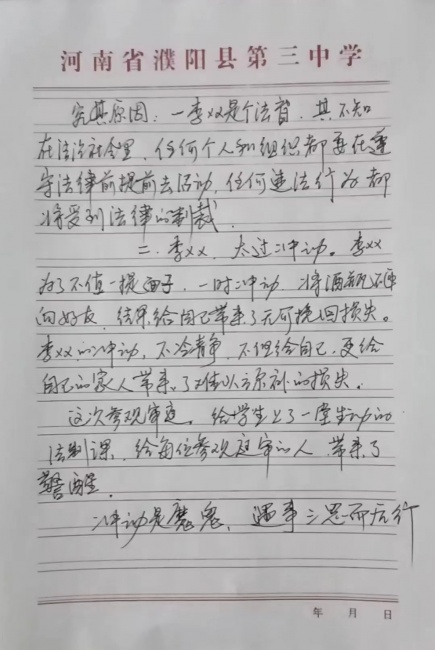 河南省濮阳县第三中学
究其原因：一李xx是个法盲，其不知
在法治社会里，任何个人和组织都要在遵
守法律前提前去活动，任何违法行为都
将受到法律的制裁
二、李xx，太过冲动。李xx
为了不值一提面子，一时冲动，将酒瓶
向好友，结果给自己带来了无可挽回损失。
李xx的冲动，不冷静，不但给自己，更给
自己的家人带来了难以的损失。
这次参观审庭，给学生上了一堂生动的
法制课，给每位参观庭审的人，带来了
警醒。
冲动是魔鬼，遇事三思而后行
年 月 日